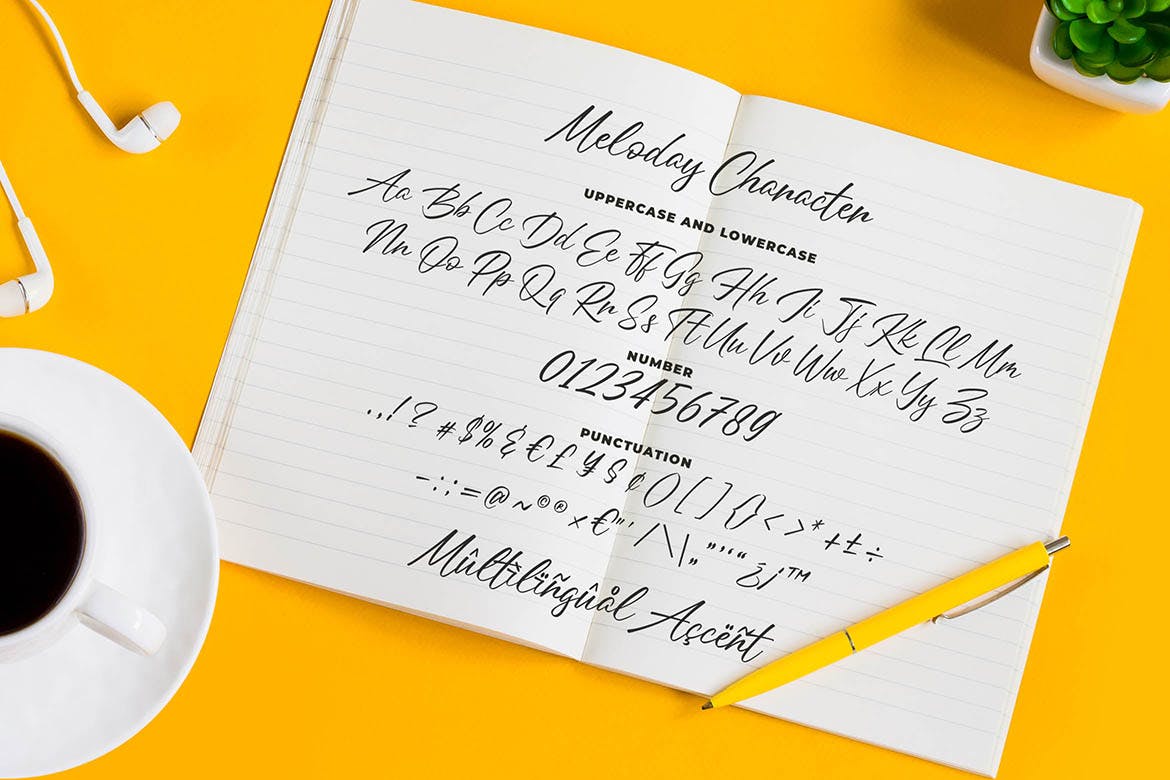 Meloday Character
UPPERCASE AND LOWERCASE
Aa Bb Cc Dd Ee Ff Gg Hh Ii Jj Kk Ll Mm
Nn Oo Pp Qq Rr Ss Tt Uu Vv Ww Xx Yy Zz
NUMBER
0123456789
PUNCTUATION
.,!? #$%&€£¥§¢()[]{}<>*+±÷
-:;=@~©®×€"'/\|„”’‘“¿¡™
Mûltîlïñgûål Aşcëñt